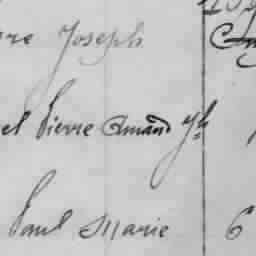 re Joseph
el Pierre Amand Jh
Paul Marie 6